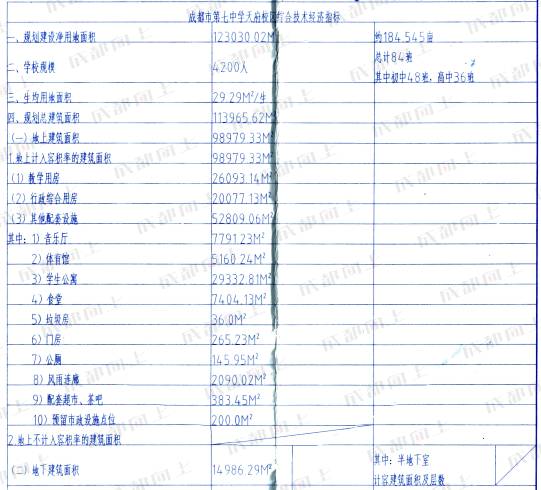 成都市第七中学天府校区综合技术经济指标
一、规划建设净用地面积 123030.02M² 约184.545亩
二、学校规模 4200人 总计84班
其中初中48班，高中36班
三、生均用地面积 29.29M²/生
四、规划总建筑面积 113965.62M²
(一) 地上建筑面积 98979.33M²
1.地上计入容积率的建筑面积 98979.33M²
(1) 教学用房 26093.14M²
(2) 行政综合用房 20077.13M²
(3) 其他配套设施 52809.06M²
其中: 1) 音乐厅 7791.23M²
2) 体育馆 5160.24M²
3) 学生公寓 29332.81M²
4) 食堂 7404.13M²
5) 垃圾房 36.0M²
6) 门房 265.23M²
7) 公厕 145.95M²
8) 风雨连廊 2090.02M²
9) 配套超市、茶吧 383.45M²
10) 预留市政设施点位 200.0M²
2.地上不计入容积率的建筑面积
(二) 地下建筑面积 14986.29M² 其中: 半地下室
计容建筑面积及层数
成都向上